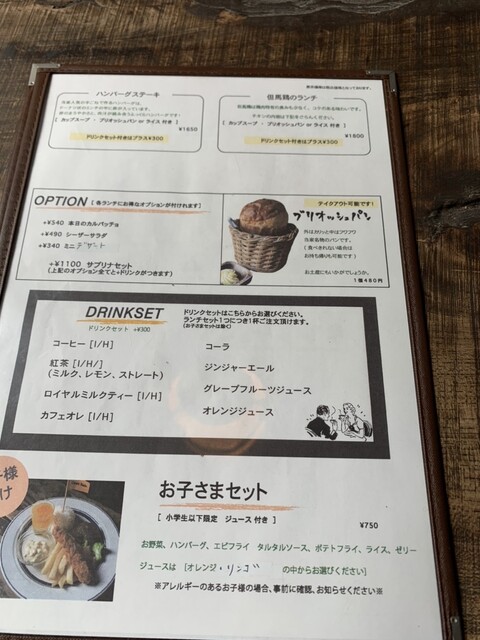 表示価格は税込価格となっております。
ハンバーグステーキ
[ カップスープ ・ ブリオッシュパン or ライス 付き ]
¥1650
ドリンクセット付きはプラス¥300
但馬鶏のランチ
[ カップスープ ・ ブリオッシュパン or ライス 付き ]
¥1600
ドリンクセット付きはプラス¥300
OPTION [ 各ランチにお得なオプションが付けれます]
+¥540 本日のカルパッチョ
+¥490 シーザーサラダ
+¥340 ミニデザート
+¥1100 サプリナセット
(上記のオプション全てと+ドリンクがつきます)
テイクアウト可能です!
ブリオッシュパン
外はカリっと中はフワフワ
当店名物のパンです。
(食べきれない場合は
お持ち帰りも可能です)
お土産にもいかがでしょうか。
1個480円
DRINKSET
ドリンクセット +¥300
ドリンクセットはこちらからお選びください。
ランチセット1つにつき1杯ご注文頂けます。
(お子さまセットは除く)
コーヒー [I/H]
紅茶 [I/H/]
(ミルク、レモン、ストレート)
ロイヤルミルクティー [I/H]
カフェオレ [I/H]
コーラ
ジンジャーエール
グレープフルーツジュース
オレンジジュース
様
け
お子さまセット
[ 小学生以下限定 ジュース付き ]
¥750
お野菜、ハンバーグ、エビフライ タルタルソース、ポテトフライ、ライス、ゼリー
ジュースは [オレンジ・リンゴ の中からお選びください]
※アレルギーのあるお子様の場合、事前に確認、お知らせください※